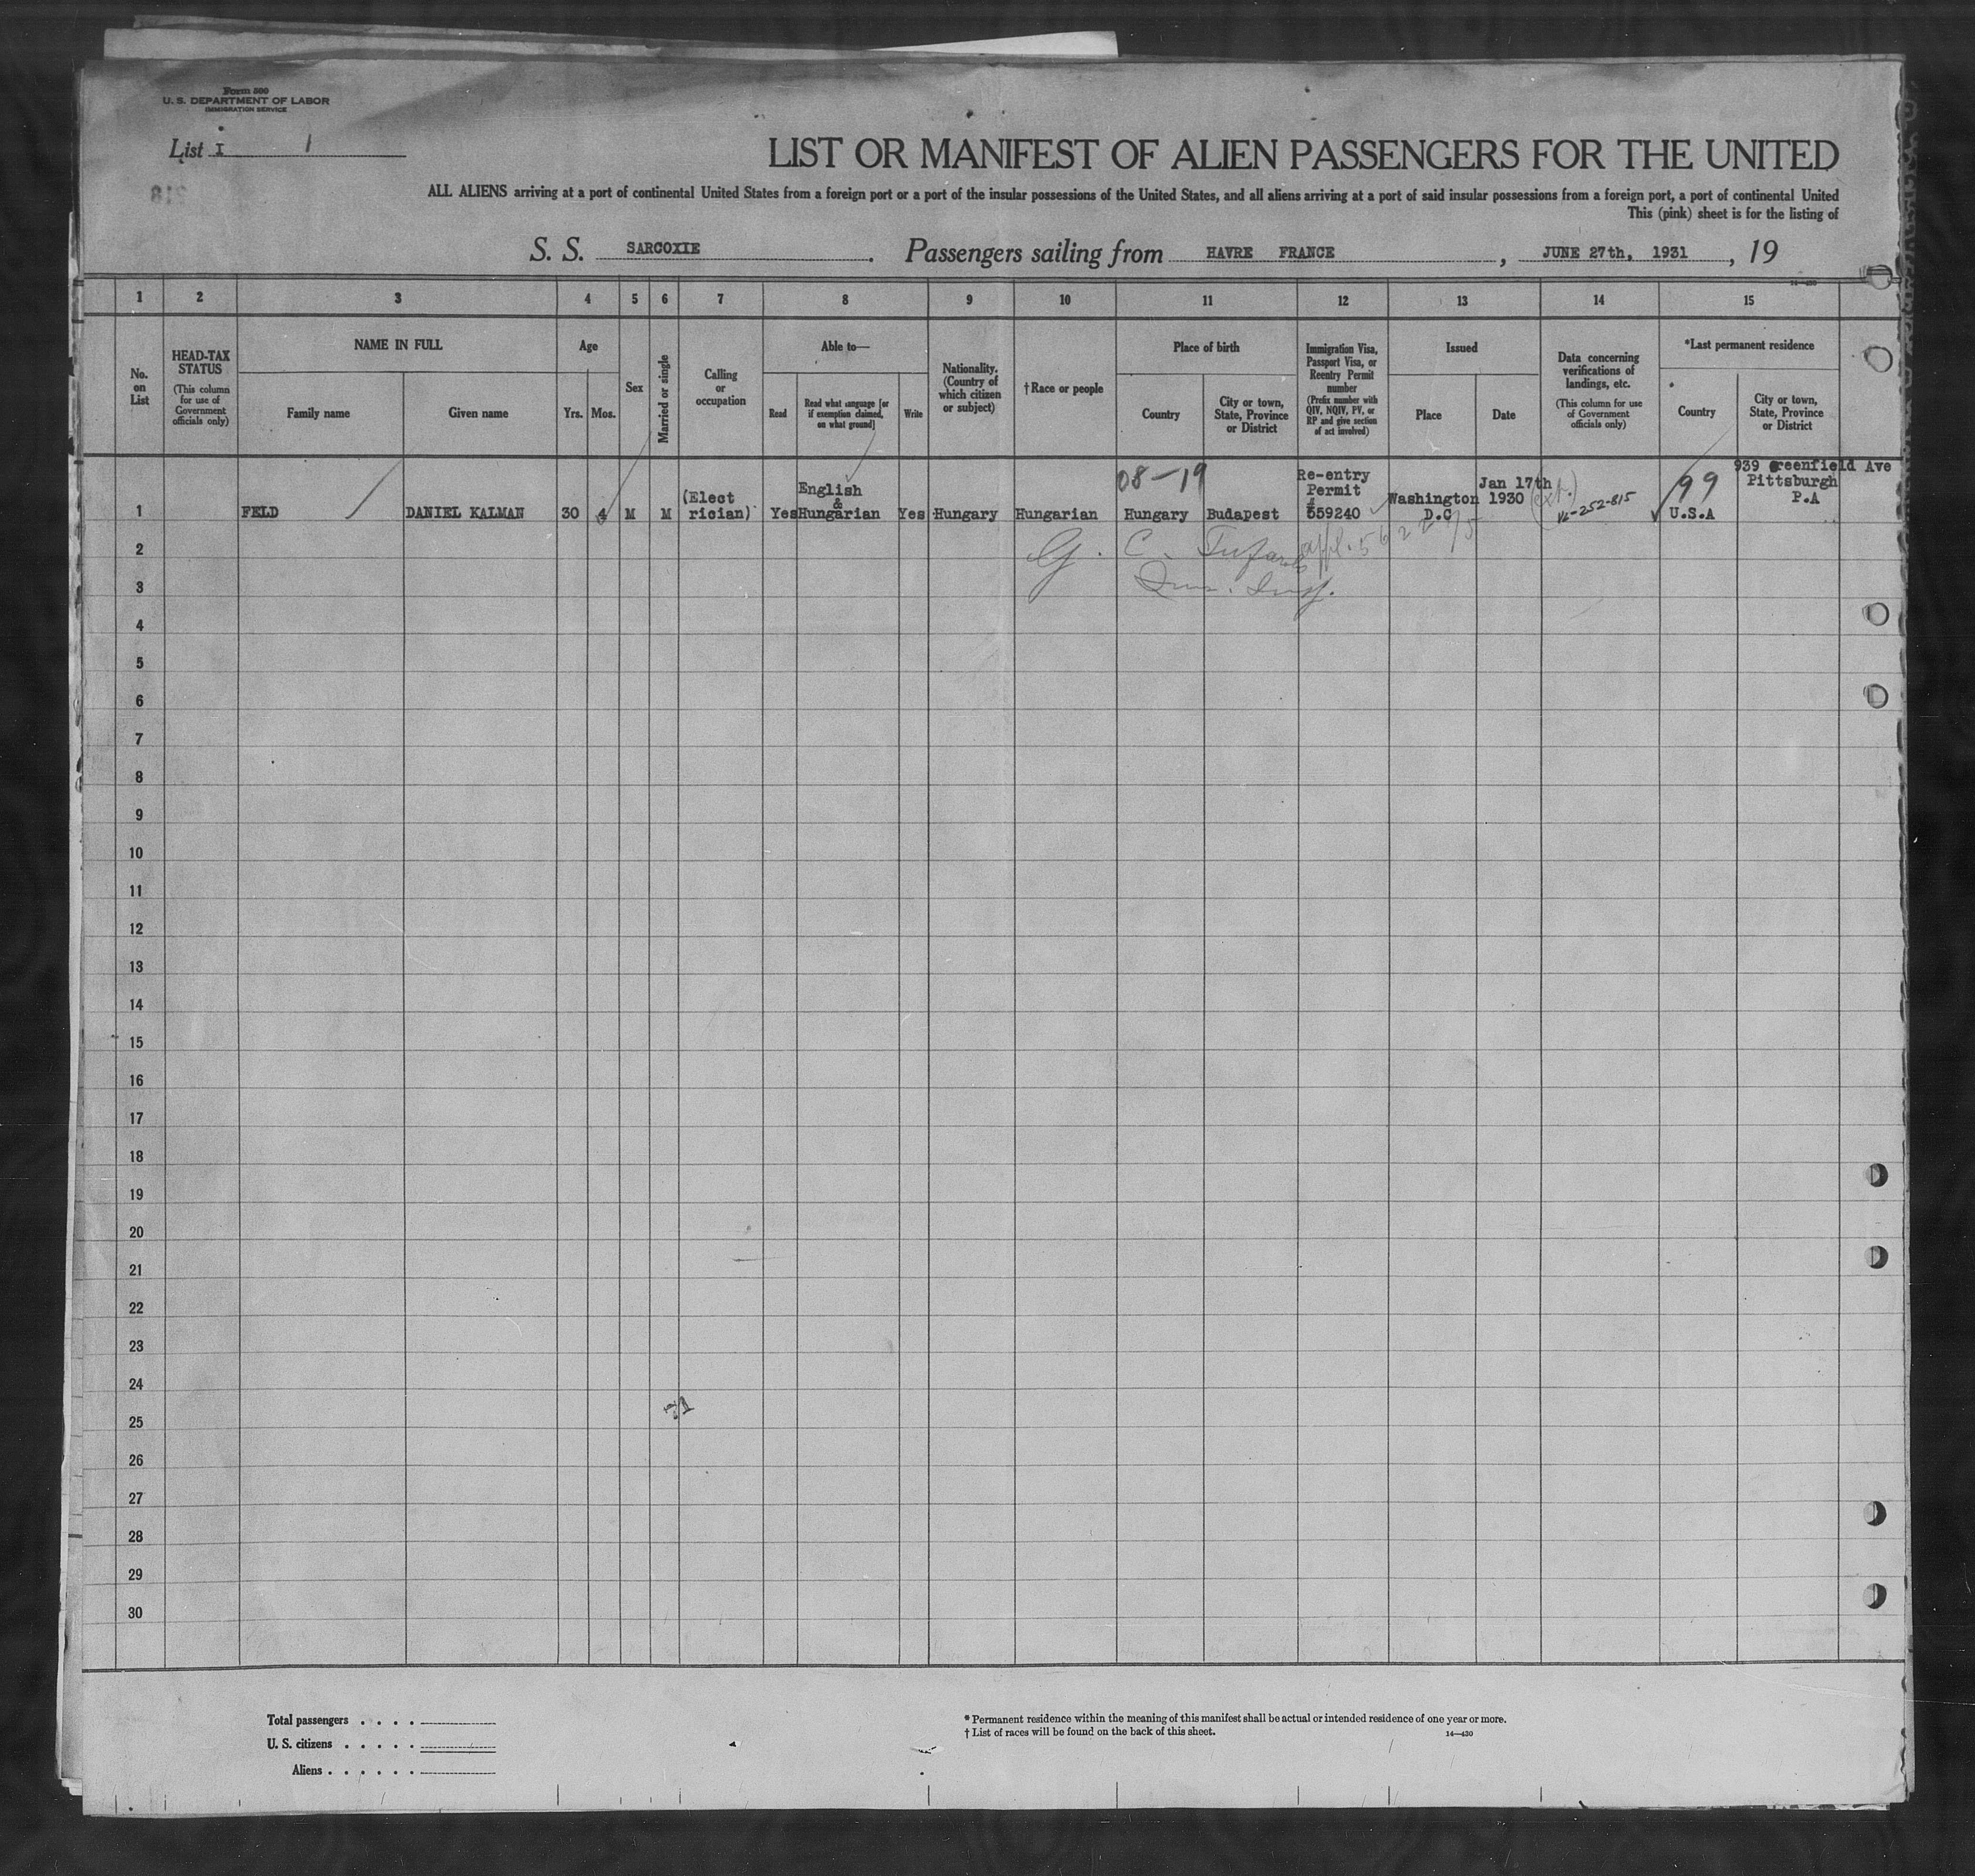 Form 500
U. S. DEPARTMENT OF LABOR
IMMIGRATION SERVICE
List I 1
LIST OR MANIFEST OF ALIEN PASSENGERS FOR THE UNITED
ALL ALIENS arriving at a port of continental United States from a foreign port or a port of the insular possessions of the United States, and all aliens arriving at a port of said insular possessions from a foreign port, a port of continental United
This (pink) sheet is for the listing of
S. S. SARCOXIE . Passengers sailing from HAVRE FRANCE , JUNE 27th, 1931 , 19
1 2 3 4 5 6 7 8 9 10 11 12 13 14 15
No. on List
HEAD-TAX STATUS
(This column for use of Government officials only)
NAME IN FULL
Family name
Given name
Age
Yrs.
Mos.
Sex
Married or single
Calling or occupation
Able to—
Read
Read what language [or if exemption claimed, on what ground]
Write
Nationality. (Country of which citizen or subject)
†Race or people
Place of birth
Country
City or town, State, Province or District
Immigration Visa, Passport Visa, or Reentry Permit number
(Prefix number with QIV, NQIV, PV, or RP and give section of act involved)
Issued
Place
Date
Data concerning verifications of landings, etc.
(This column for use of Government officials only)
*Last permanent residence
Country
City or town, State, Province or District
1 FELD DANIEL KALMAN 30 4 M M (Elect rician) Yes English & Hungarian Yes Hungary Hungarian 08-19 Hungary Budapest Re-entry Permit # 559240 Washington D.C Jan 17th 1930 (ext.) 99 U.S.A 939 Greenfield Ave Pittsburgh P.A
2 G. C.
3 Imm. Insp.
4
5
6
7
8
9
10
11
12
13
14
15
16
17
18
19
20
21
22
23
24
25
26
27
28
29
30
71
Total passengers . . . .
U. S. citizens . . . . .
Aliens . . . . . .
* Permanent residence within the meaning of this manifest shall be actual or intended residence of one year or more.
† List of races will be found on the back of this sheet.
14—430